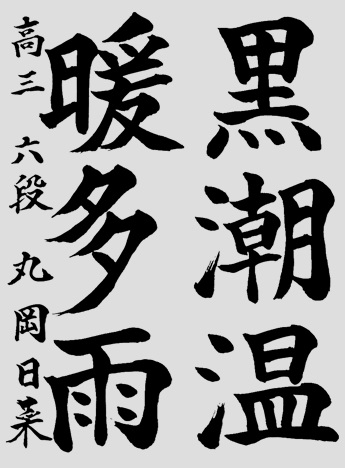 黒潮温
暖多雨
高三 六段 丸岡日菜